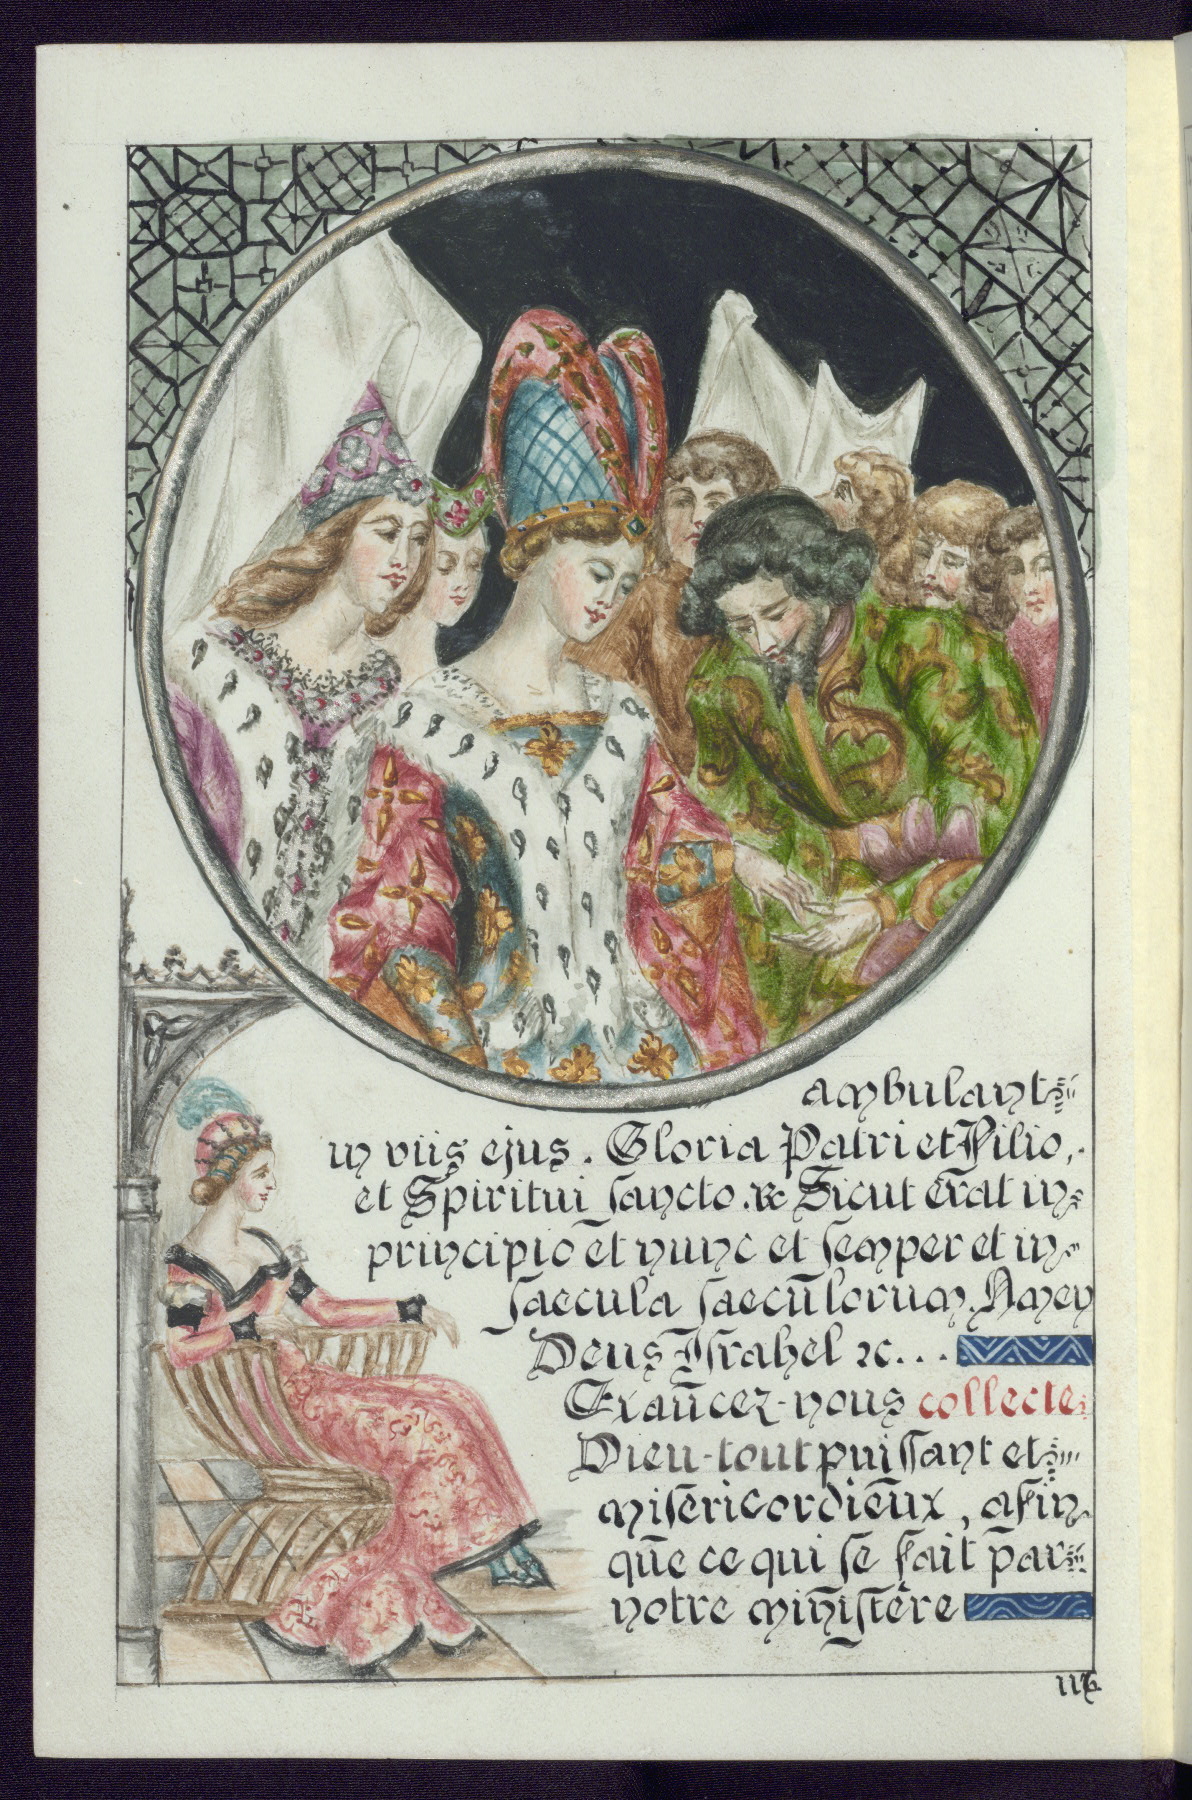 ambulant
in viis ejus. Gloria Patri et Filio,
et Spiritui sancto. & Sicut erat in
principio et nunc et semper et in
saecula saecūlorum. Amen
Deus Israhel &c...
Exaūcez-nous collecte
Dieu-tout puissant et
miséricordieūx, afin
qūe ce qui se fait par
notre ministère